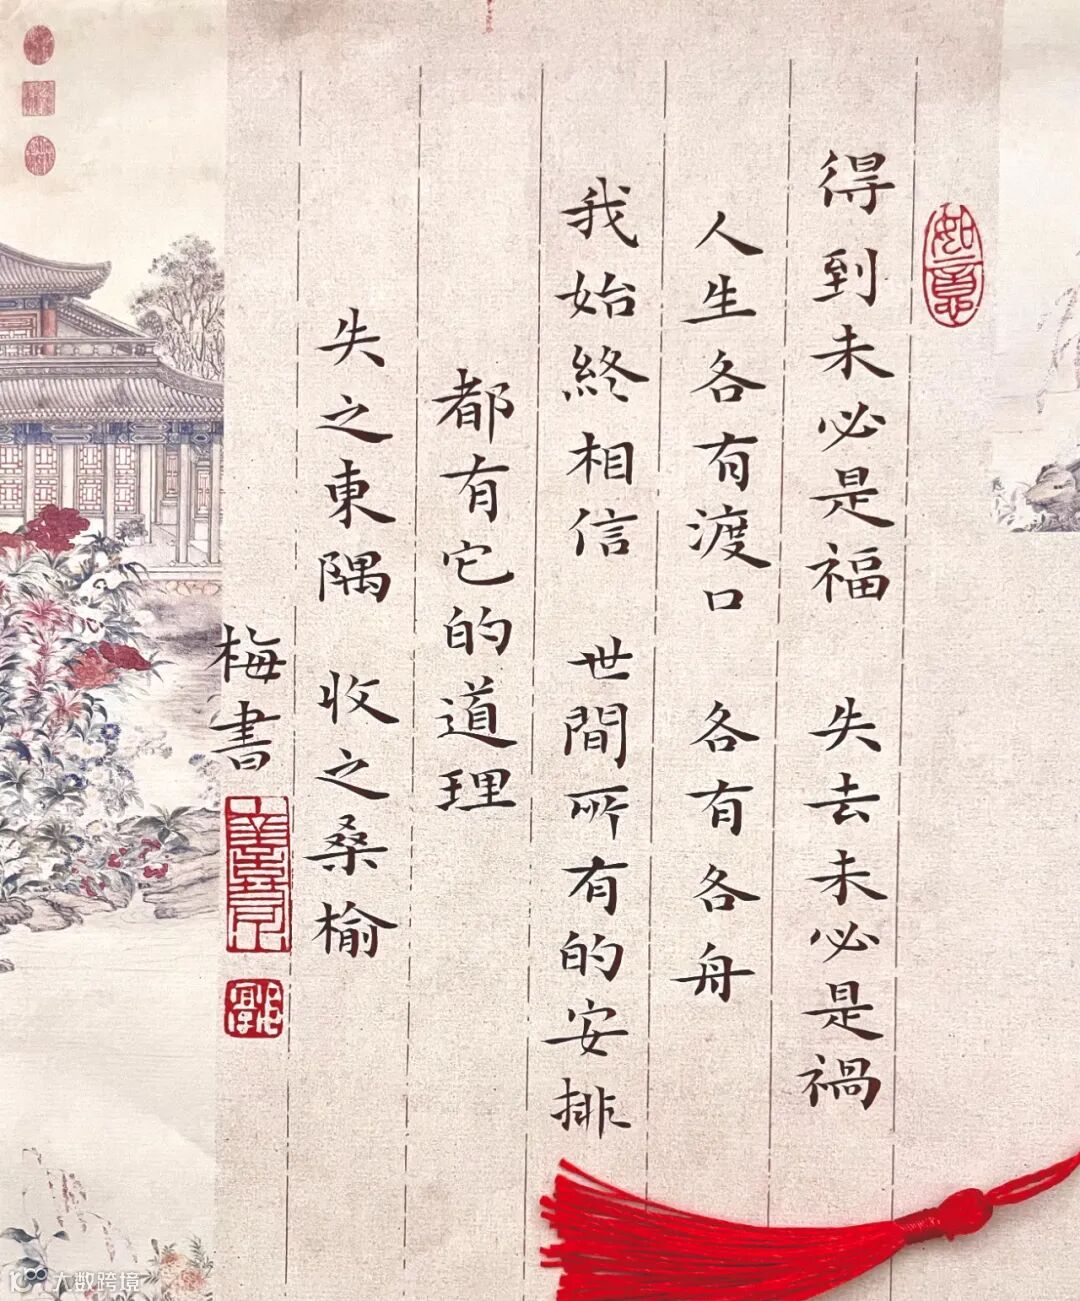 如意
得到未必是福 失去未必是禍
人生各有渡口 各有各舟
我始終相信 世間所有的安排
都有它的道理
失之東隅 收之桑榆
梅書
大数跨境